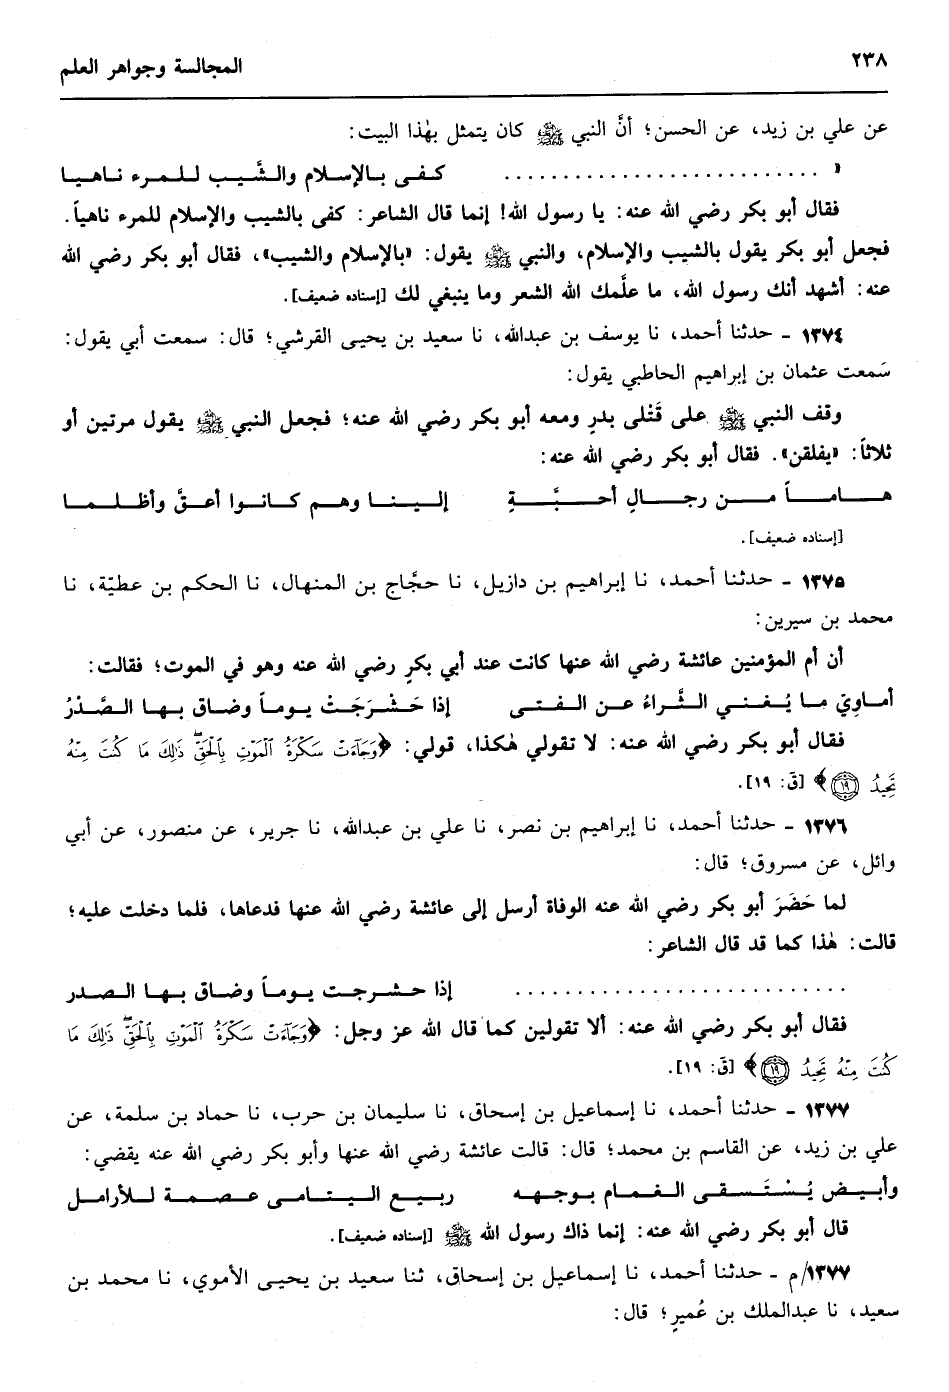 ٢٣٨ المجالسة وجواهر العلم
عن علي بن زيد، عن الحسن؛ أنَّ النبي ﷺ كان يتمثل بهٰذا البيت:
« .......................... كـفـى بـالإسـلام والـشَّـيـب لـلـمـرء نـاهـيـا
فقال أبو بكر رضي الله عنه: يا رسول الله! إنما قال الشاعر: كفى بالشيب والإسلام للمرء ناهياً.
فجعل أبو بكر يقول بالشيب والإسلام، والنبي ﷺ يقول: «بالإسلام والشيب»، فقال أبو بكر رضي الله
عنه: أشهد أنك رسول الله، ما علَّمك الله الشعر وما ينبغي لك [إسناده ضعيف].
١٣٧٤ - حدثنا أحمد، نا يوسف بن عبدالله، نا سعيد بن يحيى القرشي؛ قال: سمعت أبي يقول:
سَمعت عثمان بن إبراهيم الحاطبي يقول:
وقف النبي ﷺ على قَتْلى بدرٍ ومعه أبو بكر رضي الله عنه؛ فجعل النبي ﷺ يقول مرتين أو
ثلاثاً: «يفلقن». فقال أبو بكر رضي الله عنه:
هـامـاً مـن رجـالٍ أحـبَّـةٍ إلـيـنـا وهـم كـانـوا أعـقَّ وأظـلـمـا
[إسناده ضعيف].
١٣٧٥ - حدثنا أحمد، نا إبراهيم بن دازيل، نا حجَّاج بن المنهال، نا الحكم بن عطيّة، نا
محمد بن سيرين:
أن أم المؤمنين عائشة رضي الله عنها كانت عند أبي بكرٍ رضي الله عنه وهو في الموت؛ فقالت:
أمـاوِيّ مـا يُـغـنـي الـثَّـراءُ عـن الـفـتـى إذا حَـشْـرَجَـتْ يـومـاً وضـاق بـهـا الـصَّـدْرُ
فقال أبو بكر رضي الله عنه: لا تقولي هٰكذا، قولي: ﴿وَجَآءَتْ سَكْرَةُ ٱلْمَوْتِ بِٱلْحَقِّ ذَٰلِكَ مَا كُنتَ مِنْهُ
تَحِيدُ ١٩﴾ [قَ: ١٩].
١٣٧٦ - حدثنا أحمد، نا إبراهيم بن نصر، نا علي بن عبدالله، نا جرير، عن منصور، عن أبي
وائل، عن مسروق؛ قال:
لما حَضَرَ أبو بكر رضي الله عنه الوفاة أرسل إلى عائشة رضي الله عنها فدعاها، فلما دخلت عليه؛
قالت: هٰذا كما قد قال الشاعر:
.......................... إذا حـشـرجـت يـومـاً وضـاق بـهـا الـصـدر
فقال أبو بكر رضي الله عنه: ألا تقولين كما قال الله عز وجل: ﴿وَجَآءَتْ سَكْرَةُ ٱلْمَوْتِ بِٱلْحَقِّ ذَٰلِكَ مَا
كُنتَ مِنْهُ تَحِيدُ ١٩﴾ [قَ: ١٩].
١٣٧٧ - حدثنا أحمد، نا إسماعيل بن إسحاق، نا سليمان بن حرب، نا حماد بن سلمة، عن
علي بن زيد، عن القاسم بن محمد؛ قال: قالت عائشة رضي الله عنها وأبو بكر رضي الله عنه يقضي:
وأبـيـض يُـسْـتَـسـقـى الـغـمـام بـوجـهـه ربـيـع الـيـتـامـى عـصـمـة لـلأرامـل
قال أبو بكر رضي الله عنه: إنما ذاك رسول الله ﷺ [إسناده ضعيف].
١٣٧٧/م - حدثنا أحمد، نا إسماعيل بن إسحاق، ثنا سعيد بن يحيى الأموي، نا محمد بن
سعيد، نا عبدالملك بن عُميرٍ؛ قال: